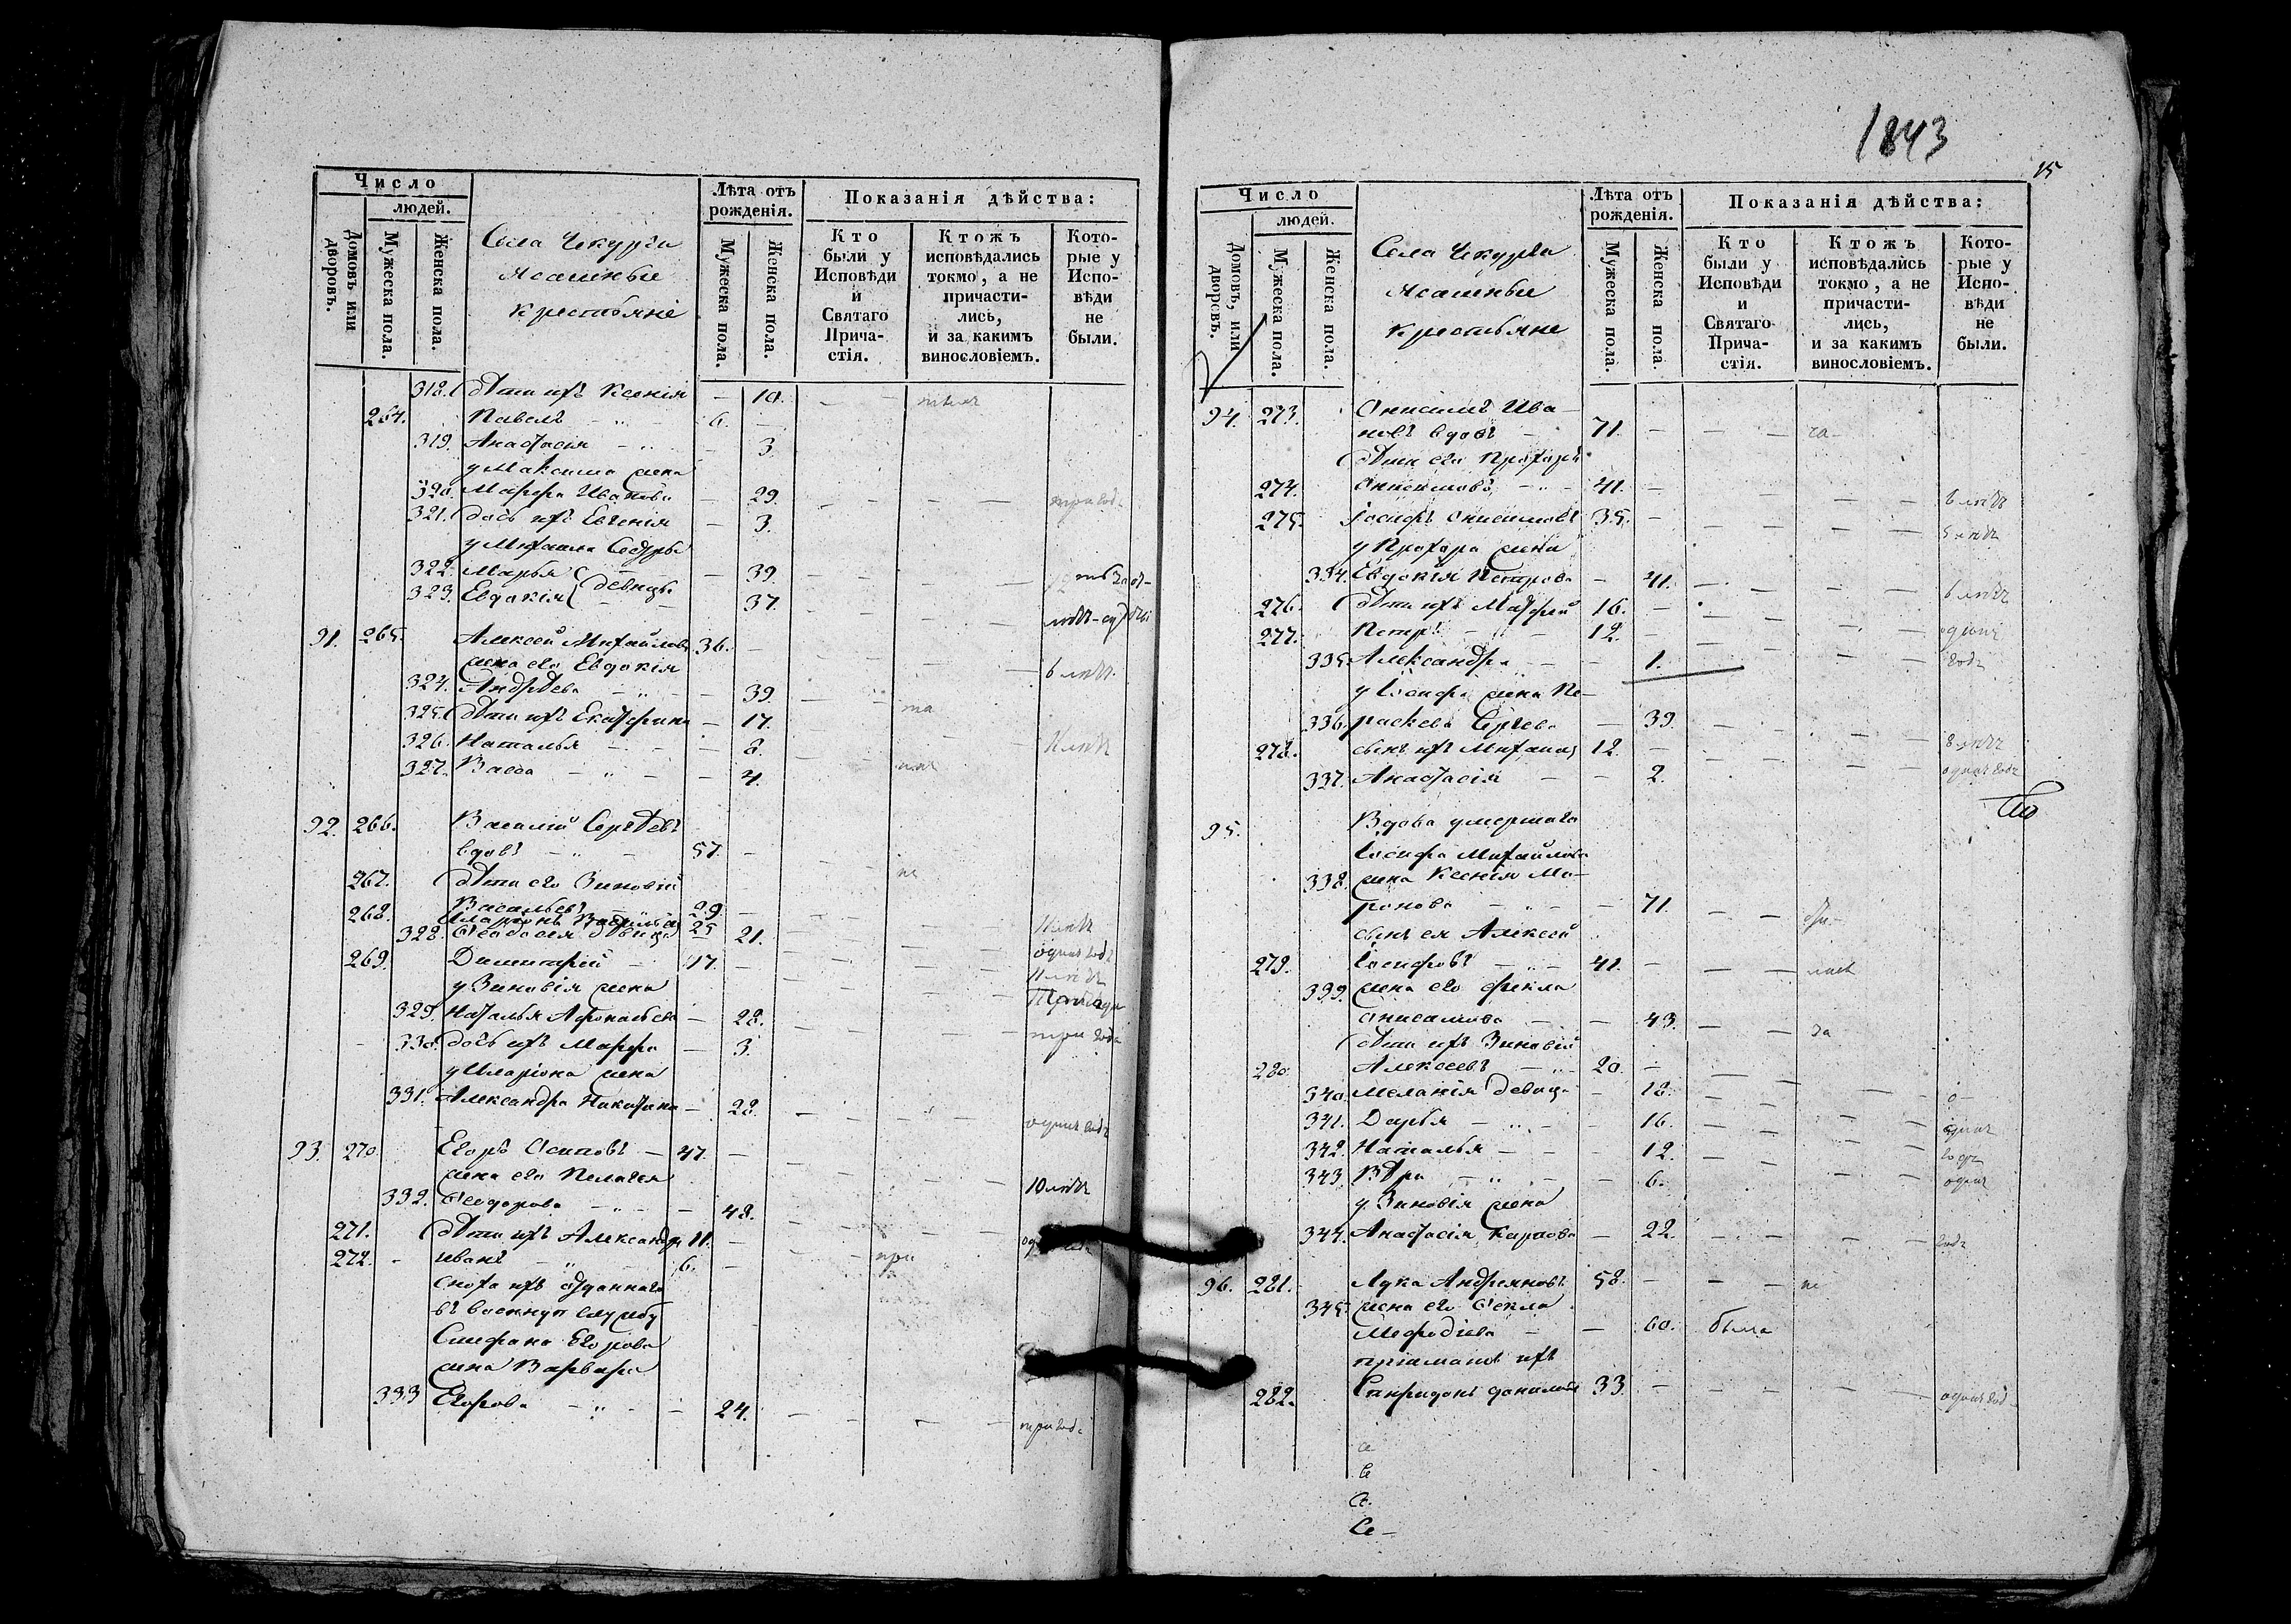 Число
людей.
Домовъ или дворовъ.
Мужеска пола.
Женска пола.
Села Чекурги
Ясашные
крестьяне
Лѣта отъ
рожденія.
Мужеска пола.
Женска пола.
Показанія дѣйства:
Кто
были у
Исповѣди
и
Святаго
Прича-
стія.
Ктожъ
исповѣдались
токмо, а не
причасти-
лись,
и за какимъ
винословіемъ.
Кото-
рые у
Испо-
вѣди
не
были.
318. Дѣти ихъ Ксенія — 10.
264. Павелъ — 6.
319. Анастасія — 3.
у Максима жена
320. Марфа Иванова — 29.
321. дочь ихъ Евгенія — 3.
у Михаила Сестры
322. Марья — 39.
323. Евдокія девицы — 37.
91. 265. Алексей Михайловъ 36. —
жена его Евдокія 6 лѣтъ
324. Андрѣева — 39.
325. Дѣти ихъ Екатерина — 17.
326. Наталья — 8.
327. Васса — 4.
92. 266. Василій Сергѣевъ
вдовъ — 57. —
267. Дѣти его Зиновій
Васильевъ 29. —
268. Иларіонъ Васильевъ 25
328. Феодосія дѣвица 21.
269. Димитрій — 17. —
у Зиновія жена
329. Наталья Афонасьева — 28.
330. дочь ихъ Марфа — 3. три года
у Иларіона жена
331. Александра Никитина — 28.
одинъ годъ
93. 270. Егоръ Осиповъ — 47. —
жена его Пелагея 10 лѣтъ
332. Феодорова — 48.
271. Дѣти ихъ Александръ 11. —
272. Иванъ — 6. —
сноха ихъ отданнаго
въ военную службу
Стефана Егорова
жена Варвара
333 Егорова — 24.
три года
1843
15
Число
людей.
Домовъ, или дворовъ.
Мужеска пола.
Женска пола.
Села Чекурги
Ясашные
крестьяне
Лѣта отъ
рожденія.
Мужеска пола.
Женска пола.
Показанія дѣйства:
Кто
были у
Исповѣди
и
Святаго
Прича-
стія.
Ктожъ
исповѣдались
токмо, а не
причасти-
лись,
и за какимъ
винословіемъ.
Кото-
рые у
Испо-
вѣди
не
были.
94. 273. Онисимъ Ива-
новъ вдовъ — 71. —
Дѣти его Прохоръ
274. Онисимовъ — 41. — 6 лѣтъ
275. Іосифъ Онисимовъ 35. — 5 лѣтъ
у Прохора жена
334. Евдокія Петрова — 41. 6 лѣтъ
276. Дѣти ихъ Матфей 16. —
277. Петръ — 12. — одинъ
335. Александра — 1. годъ
у Іосифа жена Па-
336. раскева Сергѣева — 39.
278. сынъ ихъ Михаилъ 12 — 8 лѣтъ
337. Анастасія — 2. одинъ годъ
95. Вдова умершаго
Іосифа Михайлова
338. жена Ксенія Ми-
ронова — 71.
сынъ ея Алексей
279. Іосифовъ — 41. —
339. жена его Фекла
Онисимова — 43.
Дѣти ихъ Зиновій
280. Алексеевъ — 20. —
340. Меланія девица — 18.
341. Дарья — 16. одинъ
342. Наталья — 12. годъ
343. Вѣра — 6. одинъ
у Зиновія жена
344. Анастасія Карпова — 22. годъ
96. 281. Лука Андреяновъ 58. —
345. жена его Фекла
Мефодіева — 60. была
пріимышъ ихъ
282. Спиридонъ Даниловъ 33. — одинъ годъ